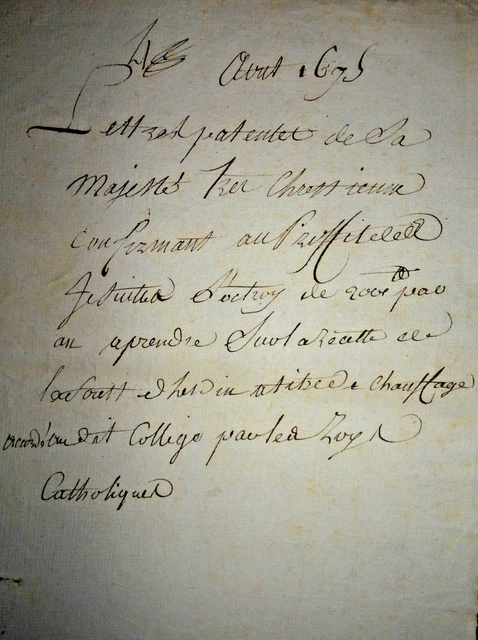 Avril 1675
Lettres patentes de Sa
Majesté tres Chrestienne
confirmant au Proffit des
Jesuites L'octroy de 200# par
an aprendre Sur la recette de
la forest d'hesdin a titre de chauffage
accordé au dit College par les Roys
Catholiques